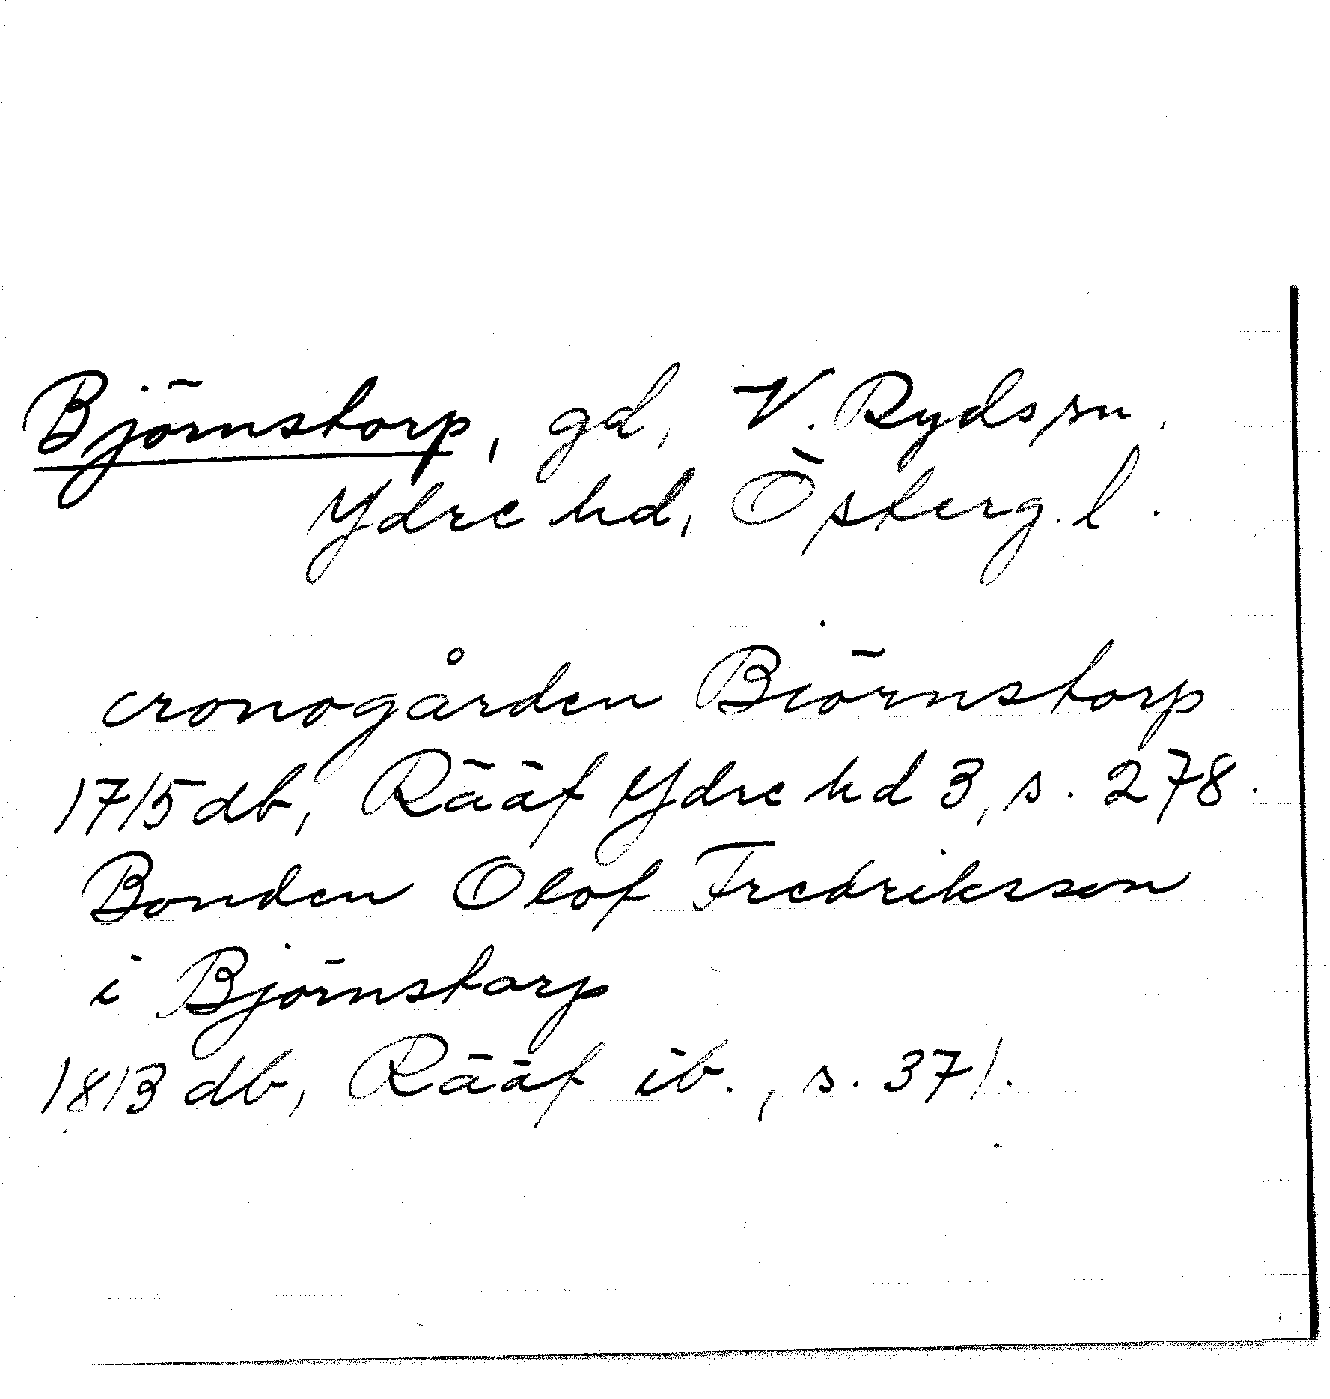 Björnstorp, gd, V. Ryds sn,
Ydre hd, Österg. l.
cronogården Biörnstorp
1715 db, Rääf Ydre hd 3, s. 278.
Bonden Olof Fredriksson
i Björnstorp
1813 db, Rääf ib., s. 371.